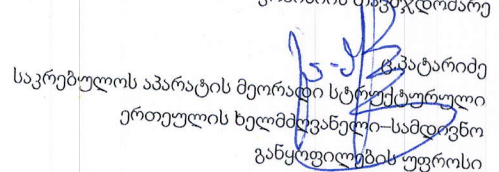 თავმჯდომარე
ც.პატარიძე
საკრებულოს აპარატის მეორადი სტრუქტურული
ერთეულის ხელმძღვანელი–სამდივნო
განყოფილების უფროსი